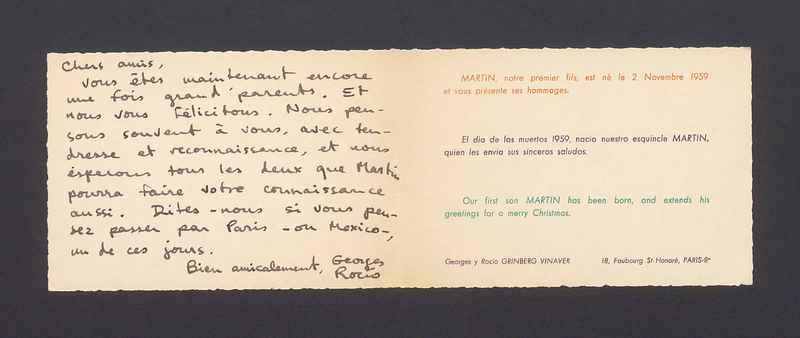 Chers amis,
Vous êtes maintenant encore
une fois grand'parents. Et
nous vous félicitons. Nous pen-
sons souvent à vous, avec ten-
dresse et reconnaissance, et nous
éspérons tous les deux que Martin
pourra faire votre connaissance
aussi. Dites-nous si vous pen-
sez passer par Paris -ou Mexico-,
un de ces jours.
Bien amicalement, Georges
Rocío
MARTIN, notre premier fils, est né le 2 Novembre 1959
et vous présente ses hommages.
El día de los muertos 1959, nacio nuestro esquincle MARTIN,
quien les envia sus sinceros saludos.
Our first son MARTIN has been born, and extends his
greetings for a merry Christmas.
Georges y Rocio GRINBERG VINAVER 18, Faubourg St Honoré, PARIS-8e